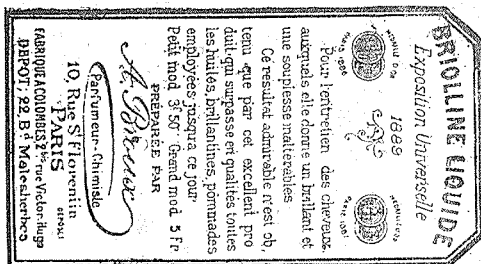 BRIOLLINE LIQUIDE
Exposition Universelle
1889
MEDAILLE D'OR
PARIS 1886
PARIS 1881
Pour l'entretien des cheveux,
auxquels elle donne un brillant et
une souplesse inaltérables
Ce résultat admirable n'est ob,
tenu que par cet excellent pro
duit qui surpasse en qualités toutes
les huiles, brillantines, pommades
employées jusqu'à ce jour
Petit mod. 3f 50 Grand mod. 5 Fr
PRÉPARÉE PAR
Parfumeur-Chimiste
10, Rue St Florentin
PARIS
DEPOSE
FABRIQUE A COLOMBES, 2bis rue Victor-Hugo
DEPOT: 22, Bd Malesherbes